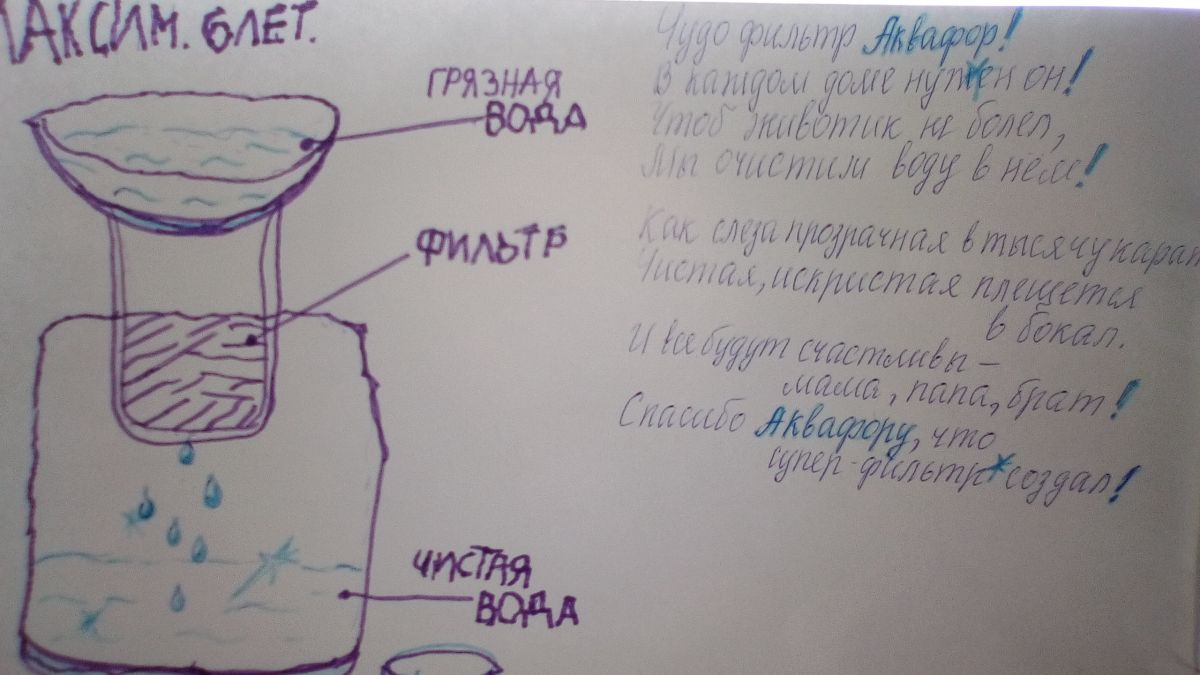 МАКСИМ. 6ЛЕТ.
ГРЯЗНАЯ
ВОДА
ФИЛЬТР
ЧИСТАЯ
ВОДА
Чудо фильтр Аквафор!
В каждом доме нужен он!
Чтоб животик не болел,
Мы очистим воду в нём!
Как слеза прозрачная в тысячу карат
Чистая, искристая плещется
в бокал.
И все будут счастливы –
мама, папа, брат!
Спасибо Аквафору, что
супер-фильтр создал!